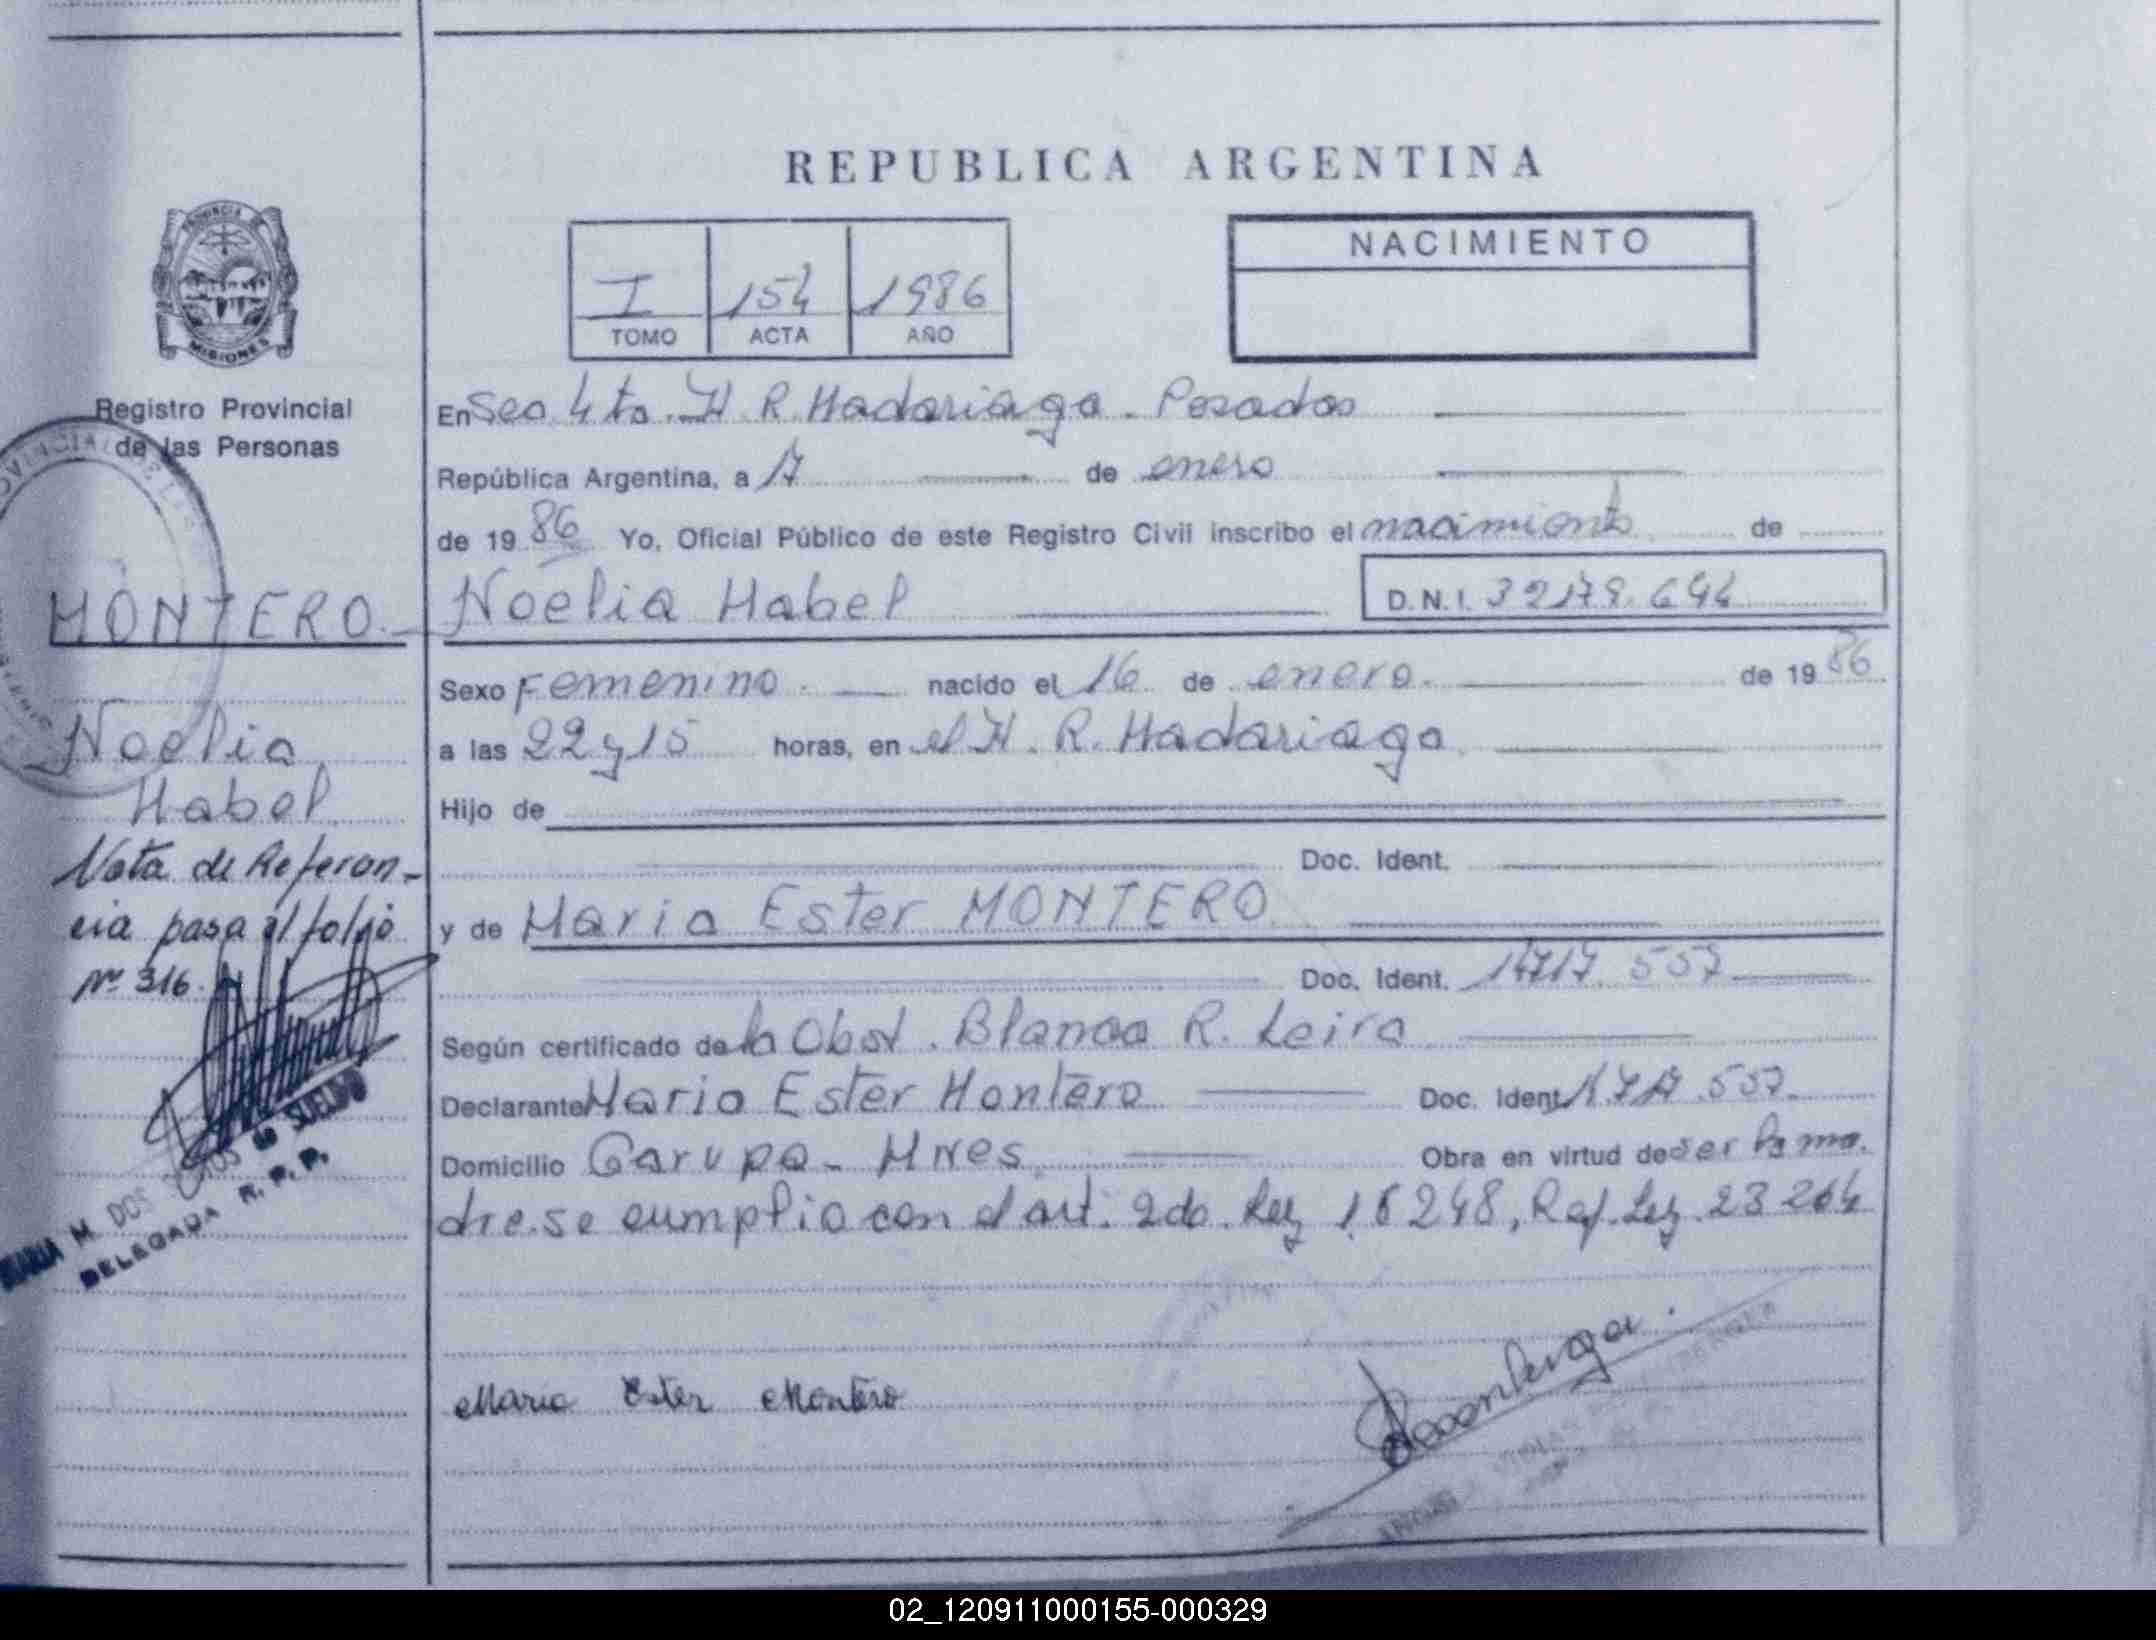 REPUBLICA ARGENTINA
PROVINCIA DE
MISIONES
Registro Provincial
de las Personas
I 154 1986
TOMO ACTA AÑO
NACIMIENTO
En Sec 4ta. H. R. Madariaga. Posadas
República Argentina, a 17 de enero
de 1986 Yo, Oficial Público de este Registro Civil inscribo el nacimiento de
MONTERO. Noelia Mabel D.N.I. 32179.694
Sexo Femenino. nacido el 16 de enero. de 1986
Noelia a las 22 y 15 horas, en el H. R. Madariaga
Mabel Hijo de
Nota de Referen- Doc. Ident.
cia pasa al folio y de Maria Ester MONTERO
Nº 316. Doc. Ident. 14717.557
Según certificado de la Obst. Blanca R. Leira
Declarante Maria Ester Montero Doc. Ident. 557.
Domicilio Garupa - Mnes. Obra en virtud de ser la ma-
dre. se cumplio con el art. 2do. Ley 18248, Ref. Ley 23264
MARIA M. DOS de SUELDO
DELEGADA R. P. P.
Maria Ester Montero
02_120911000155-000329